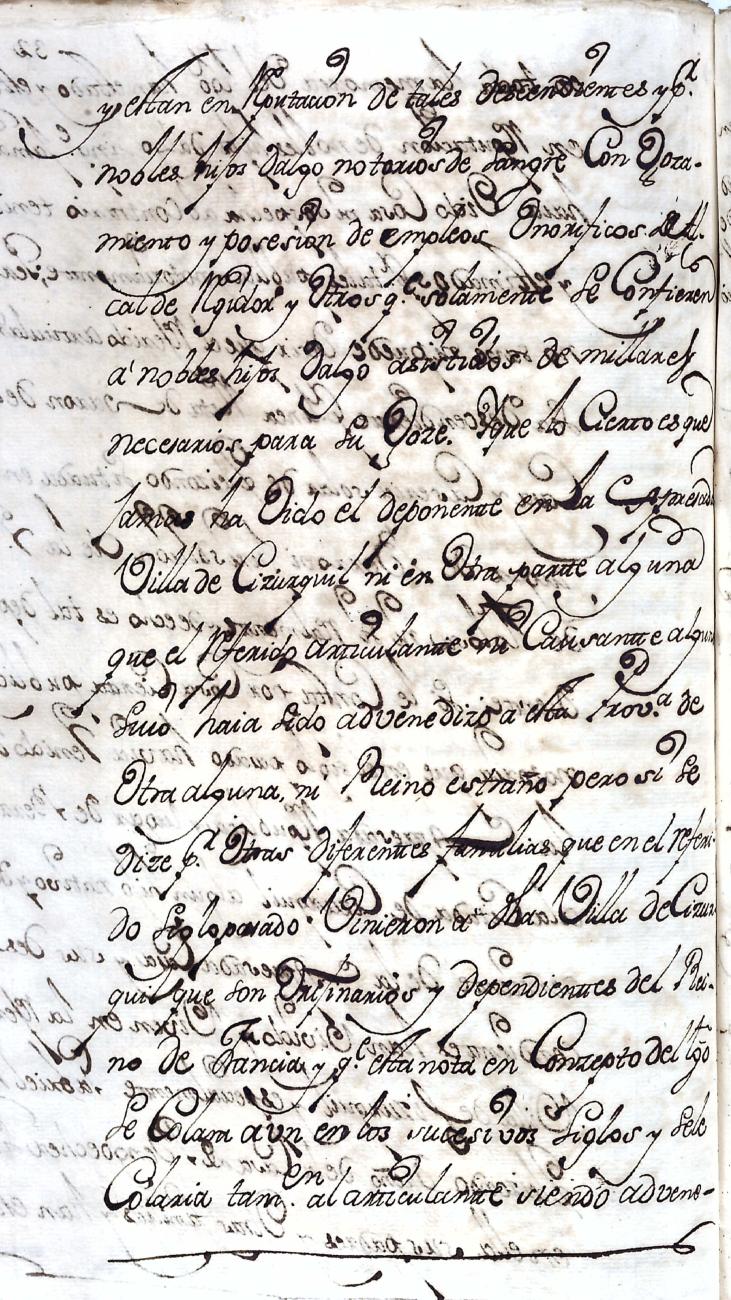 y estan en Reputacion de tales descendientes y pª.
nobles hijos dalgo notorios de sangre Con Goza-
miento y posesion de empleos Onorificos de Al-
calde Regidor y Otros q.e solamente se Confieren
a' nobles hijos Dalgo asistidos de millares
necesarios para su Goze. Y que lo Cierto es que
Jamas ha Oido el deponente en la Expresada
Villa de Cizurquil ni en Otra parte alguna
que el Referido articulante ni Causante alguno
suio haia sido advenedizo a esta Prov.ª de
Otra alguna, ni Reino estraño pero si se
dize pª. Otras diferentes familias que en el referi-
do siglo pasado Vinieron a dha Villa de Cizur-
quil que son Originarios y dependientes del Rei-
no de Francia y q.e esta nota en Conzepto del tgo
se Colara aun en los sucesivos siglos y sele
Colaria tam.en al articulante siendo advene-